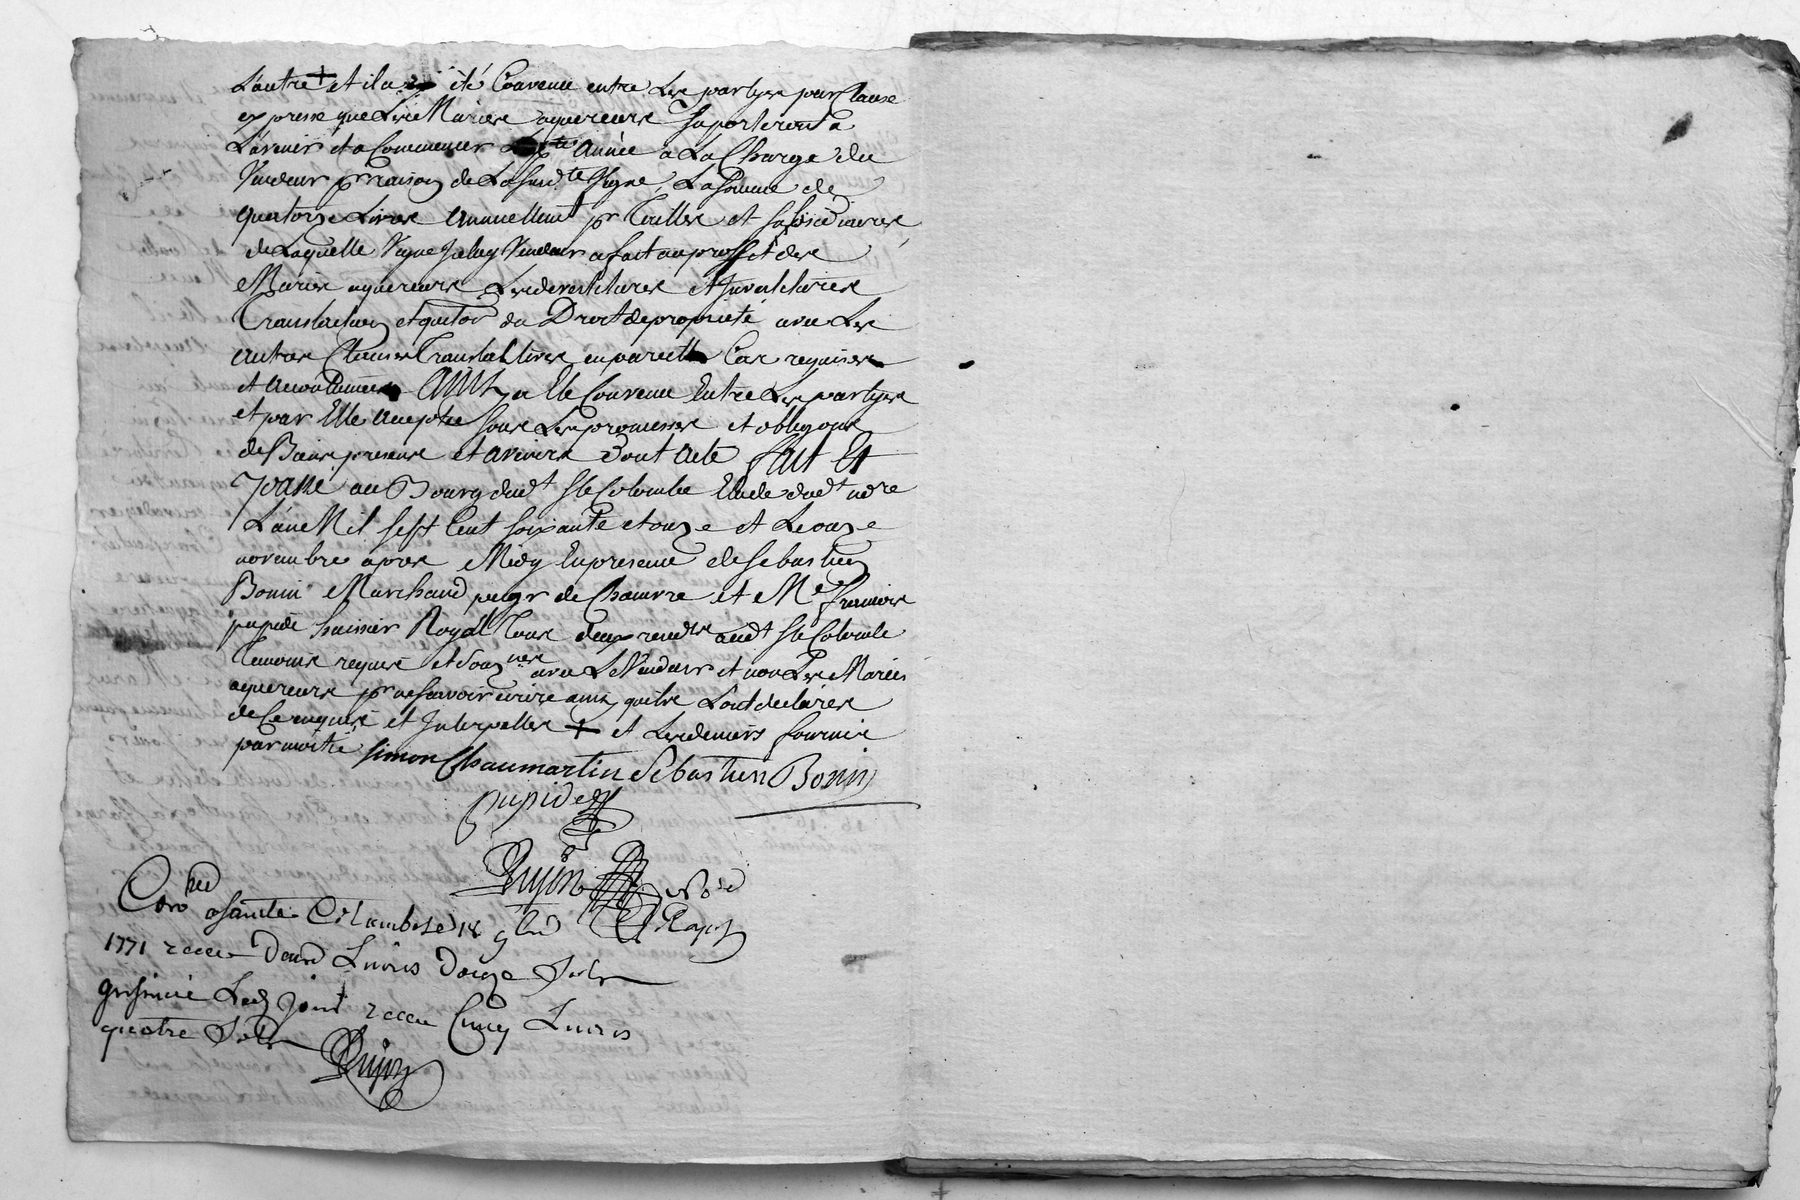 L'autre + et il a été Convenu entre Les partyes par Clause
expresse que Lesd Mariés aquereurs suporteront a
L'avenir et a Commencer La pnte Année a La Charge du
Vendeur pr raison de La susdte Vigne, La somme de
quatorze Livres annuellement pr Tailles et subsidiaires
de Laquelle Vigne Led Vendeur a fait au proffit des
Mariés aquereurs Les devestitures et Investitures
Translation et quitor du Droit de propriété avec Les
autres Clauses Translatives en pareil Cas requises
et accoutumées Ainsy a Ete Convenu Entre Les partyes
et par Elle acceptée sous Les promesses et obligons
de Biens presens et avenirs Dont acte fait Et
passé au Bourg dudt Ste Colombe Etude dudt nore
L'an Mil sept Cent soixante et onze et Le onze
novembre apres Midy En presence de sebastien
Bonin Marchand peigr de Chanvre et Me francois
pupide huissier Royal Tous deux residts audt Ste Colombe
Temoins requis et sousnés avec Le Vendeur et non Les Mariés
aquereurs pr ne scavoir ecrire ainsy qu'ils L'ont declarés
de Ce enquis et Interpellés + et Les deniers fournis
par moitié simon Chaumartin Sebastien Bonin
pupide
Pujin Nore
Royal
Conrlled a sainte Colombe Le 18 9bre
1771 receu Deux Livres Douze Sols
Insinué Led jour receu Cinq Livres
quatre Sols
Pujin